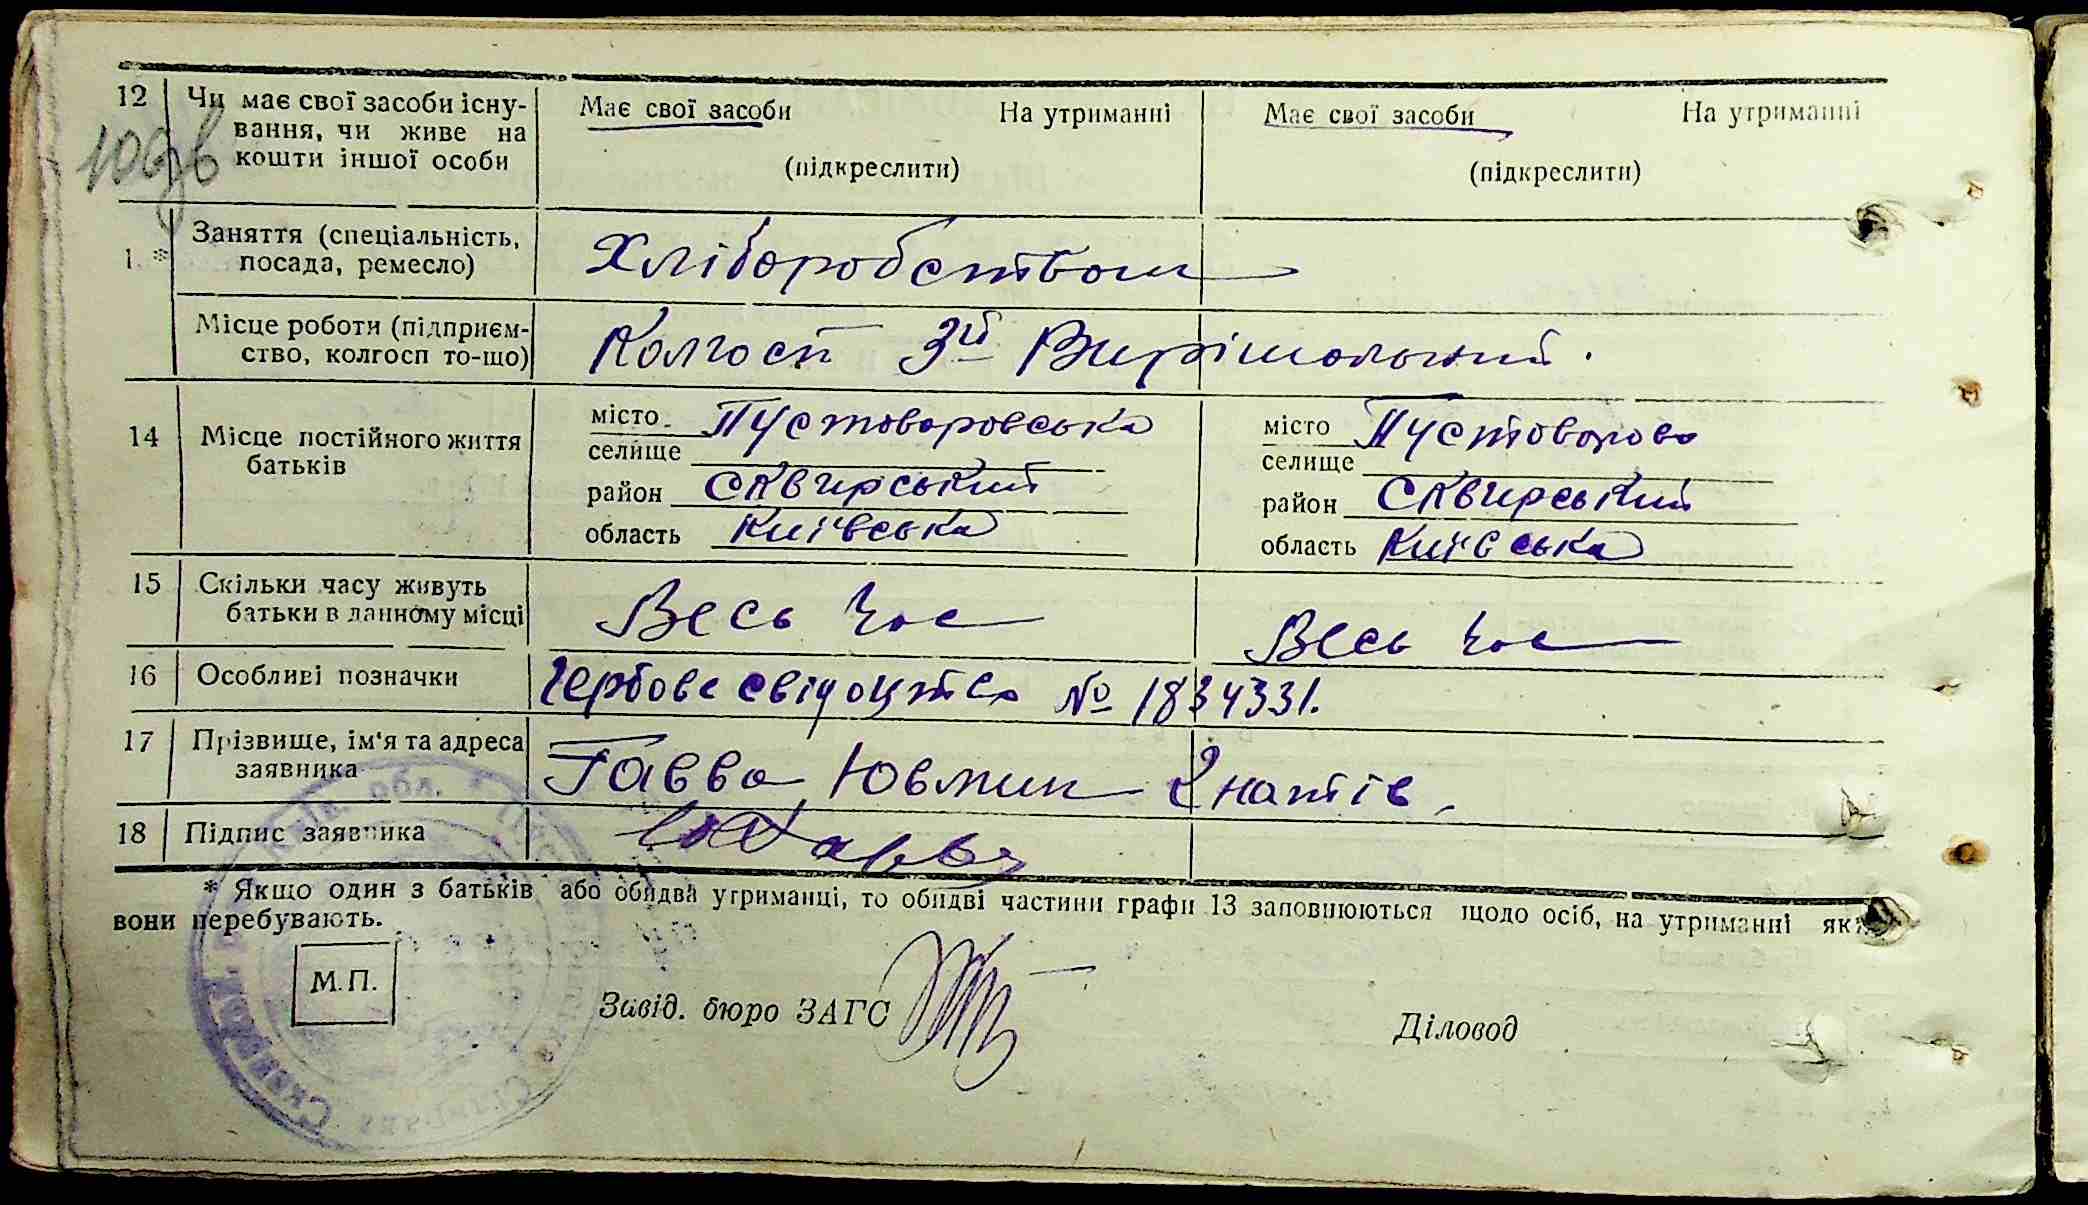 12 Чи має свої засоби існу- Має свої засоби На утриманні Має свої засоби На утриманні
вання, чи живе на
кошти іншої особи (підкреслити) (підкреслити)
Заняття (спеціальність, Хліборобством
1 * посада, ремесло)
Місце роботи (підприєм- Колгосп 3й Вирішальний.
ство, колгосп то-що)
14 Місце постійного життя місто Пустоваровська місто Пустоварово
батьків селище селище
район Сквирський район Сквирський
область Київська область Київська
15 Скільки часу живуть Весь час Весь час
батьки в данному місці
16 Особливі позначки Гербове свідоцтво № 1834331.
17 Прізвище, ім'я та адреса Гавва Ювмин Гнатів.
заявника
18 Підпис заявника
* Якщо один з батьків або обидва утриманці, то обидві частини графи 13 заповнюються щодо осіб, на утриманні яких
вони перебувають.
М.П.
Завід. бюро ЗАГС Діловод